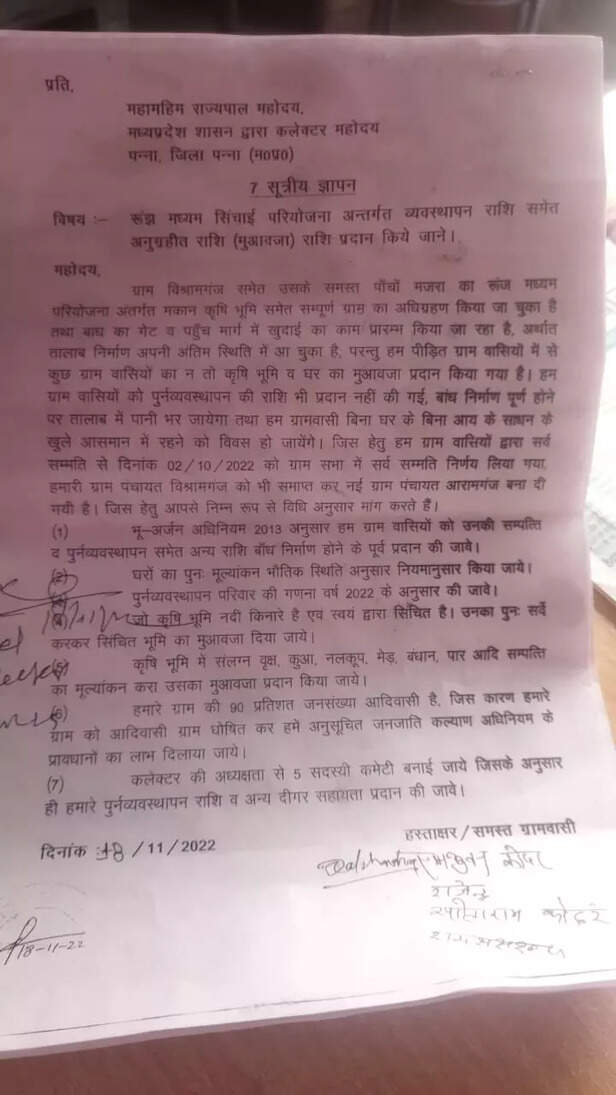 प्रति,
महामहिम राज्यपाल महोदय,
मध्यप्रदेश शासन द्वारा कलेक्टर महोदय
पन्ना, जिला पन्ना (म0प्र0)
7 सूत्रीय ज्ञापन
विषय :- रूंझ मध्यम सिंचाई परियोजना अन्तर्गत व्यवस्थापन राशि समेत
अनुग्रहीत राशि (मुआवजा) राशि प्रदान किये जाने।
महोदय,
ग्राम विश्रामगंज समेत उसके समस्त पाँचों मजरा का रूंज मध्यम
परियोजना अंतर्गत मकान कृषि भूमि समेत सम्पूर्ण ग्राम का अधिग्रहण किया जा चुका है
तथा बाध का गेट व पहुँच मार्ग में खुदाई का काम प्रारम्भ किया जा रहा है, अर्थात
तालाब निर्माण अपनी अंतिम स्थिति में आ चुका है, परन्तु हम पीड़ित ग्राम वासियों में से
कुछ ग्राम वासियों का न तो कृषि भूमि व घर का मुआवजा प्रदान किया गया है। हम
ग्राम वासियों को पुर्नव्यवस्थापन की राशि भी प्रदान नहीं की गई, बांध निर्माण पूर्ण होने
पर तालाब में पानी भर जायेगा तथा हम ग्रामवासी बिना घर के बिना आय के साधन के
खुले आसमान में रहने को विवस हो जायेंगे। जिस हेतु हम ग्राम वासियों द्वारा सर्व
सम्मति से दिनांक 02/10/2022 को ग्राम सभा में सर्व सम्मति निर्णय लिया गया,
हमारी ग्राम पंचायत विश्रामगंज को भी समाप्त कर नई ग्राम पंचायत आरामगंज बना दी
गयी है। जिस हेतु आपसे निम्न रूप से विधि अनुसार मांग करते हैं।
(1) भू-अर्जन अधिनियम 2013 अनुसार हम ग्राम वासियों को उनकी सम्पत्ति
व पुर्नव्यवस्थापन समेत अन्य राशि बाँध निर्माण होने के पूर्व प्रदान की जावे।
(2) घरों का पुनः मूल्यांकन भौतिक स्थिति अनुसार नियमानुसार किया जाये।
पुर्नव्यवस्थापन परिवार की गणना वर्ष 2022 के अनुसार की जावे।
जो कृषि भूमि नदी किनारे है एव स्वयं द्वारा सिंचित है। उनका पुनः सर्वे
करकर सिंचित भूमि का मुआवजा दिया जाये।
कृषि भूमि में संलग्न वृक्ष, कुआ, नलकूप, मेड़, बंधान, पार आदि सम्पत्ति
का मूल्यांकन करा उसका मुआवजा प्रदान किया जाये।
(6) हमारे ग्राम की 90 प्रतिशत जनसंख्या आदिवासी है, जिस कारण हमारे
ग्राम को आदिवासी ग्राम घोषित कर हमें अनुसूचित जनजाति कल्याण अधिनियम के
प्रावधानों का लाभ दिलाया जाये।
(7) कलेक्टर की अध्यक्षता से 5 सदस्यी कमेटी बनाई जाये जिसके अनुसार
ही हमारे पुर्नव्यवस्थापन राशि व अन्य दीगर सहायता प्रदान की जावे।
हस्ताक्षर/समस्त ग्रामवासी
दिनांक 18/11/2022
राजेन्द्र
18-11-22